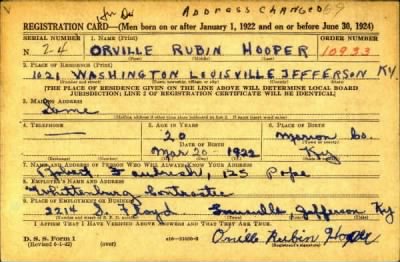 ADDRESS CHANGED
REGISTRATION CARD—(Men born on or after January 1, 1922 and on or before June 30, 1924)
SERIAL NUMBER 1. NAME (Print) ORDER NUMBER
24 ORVILLE RUBIN HOOPER 10933
(First) (Middle) (Last)
2. PLACE OF RESIDENCE (Print)
1021 WASHINGTON LOUISVILLE JEFFERSON KY.
[THE PLACE OF RESIDENCE GIVEN ON THE LINE ABOVE WILL DETERMINE LOCAL BOARD
JURISDICTION; LINE 2 OF REGISTRATION CERTIFICATE WILL BE IDENTICAL]
3. MAILING ADDRESS
Same
4. TELEPHONE 5. AGE IN YEARS 6. PLACE OF BIRTH
20 Co.
DATE OF BIRTH
Mar 20 - 1922 Ky
7. NAME AND ADDRESS OF PERSON WHO WILL ALWAYS KNOW YOUR ADDRESS
125 Pope
8. EMPLOYER'S NAME AND ADDRESS
Whittenburg
9. PLACE OF EMPLOYMENT OR BUSINESS
2214 S. Floyd Louisville Jefferson Ky
I AFFIRM THAT I HAVE VERIFIED ABOVE ANSWERS AND THAT THEY ARE TRUE.
D. S. S. Form 1
(over)
Orville Rubin Hooper